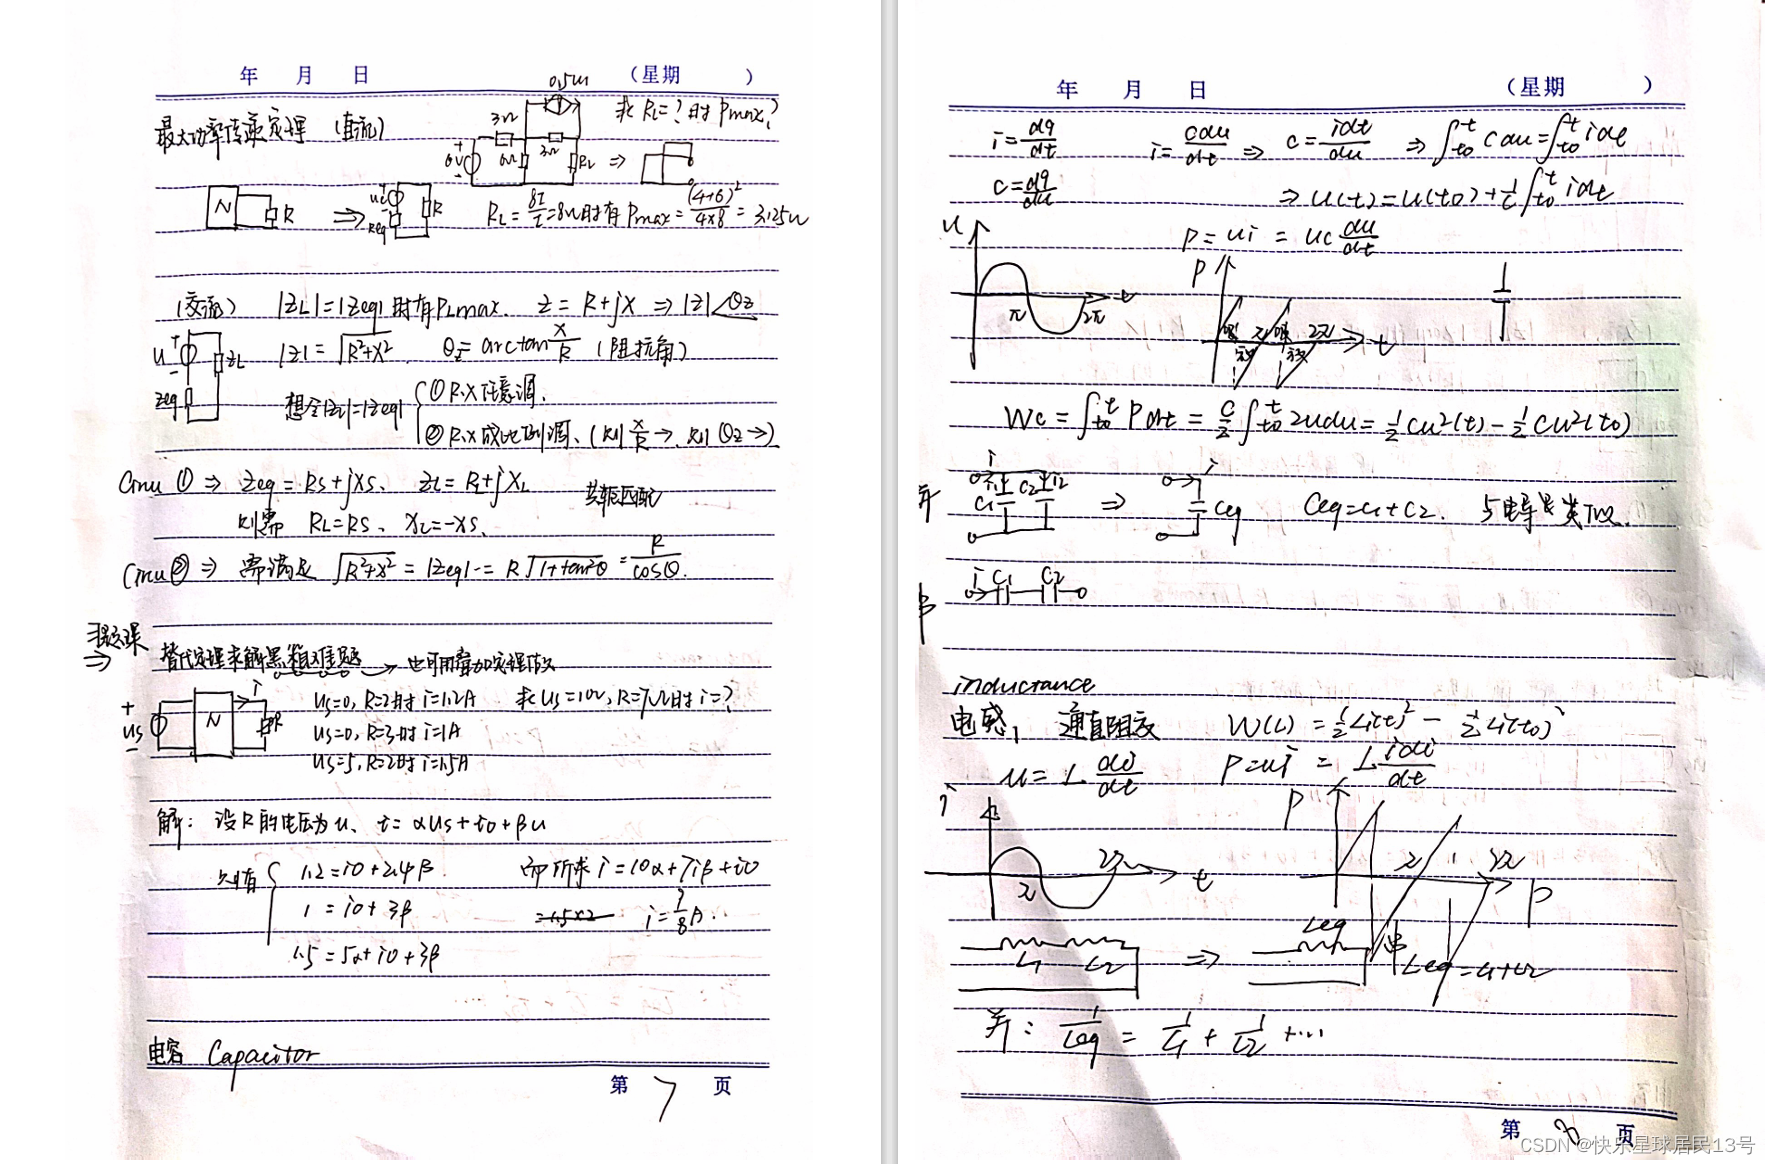 年 月 日 (星期 )
最大功率传递定理 (直流)
0.5u
3Ω
3Ω
RL
求RL=?时Pmax?
N
R
uc
Req
R
RL = 8I/I = 8Ω时有 Pmax = (4+6)²/4×8 = 3.125W
(交流) |ZL|=|Zeq|时有PLmax. Z = R+jX ⇒ |Z|∠θz
u
ZL
Zeq
|Z| = √R²+X² θz= arctan X/R (阻抗角)
想令|ZL|=|Zeq|
① R、X任意调.
② R、X成比例调、(则 X/R →, 则 θz →)
① ⇒ Zeq = RS+jXS、 ZL= RL+jXL 共轭匹配
则需 RL=RS、 XL=-XS.
② ⇒ 需满足 √R²+X² = |Zeq| = R√1+tan²θ = R/cosθ.
替代定理求解黑箱难题 → 也可用叠加定理做
us
N
i
R
us=0, R=2时 i=1.2A 求us=10v, R=7Ω时i=?
us=0, R=3时 i=1A
us=5, R=2时 i=1.5A
解: 设R的电压为u、 i= αus+i0+βu
则有
1.2 = i0+2.4β
1 = i0+3β
1.5 = 5α+i0+3β
而所求 i=10α+7iβ+i0
i= 7/8 A.
电容 Capacitor
第 7 页
年 月 日 (星期 )
i= dq/dt i= cdu/dt ⇒ c= idt/du ⇒ ∫t0^t cdu=∫t0^t idt
c= dq/du ⇒ u(t)=u(t0)+1/c∫t0^t idt
P = ui = uc du/dt
u
π
2π
t
P
t
Wc = ∫t0^t Pdt = c/2 ∫t0^t 2udu = ½cu²(t) - ½cu²(t0)
并
i
C1
C2
⇒
i
Ceq
Ceq=c1+c2. 与电导是类似.
串
i
C1
C2
inductance
电感, 通直阻交 W(L) = ½Li(t)² - ½Li(t0)²
u= L di/dt P=ui = L idi/dt
i
π
2π
t
P
L1
L2
⇒
Leq
串
Leq=L1+L2
并: 1/Leq = 1/L1 + 1/L2 + ...
第 8 页
CSDN @快乐星球居民13号